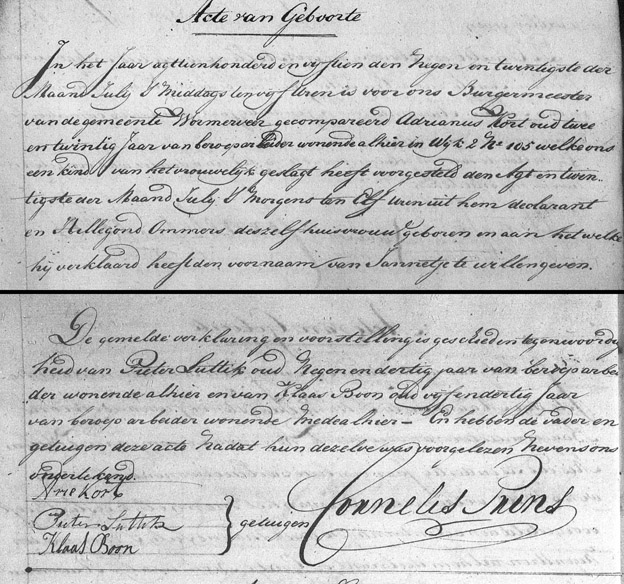 Acte van Geboorte
In het Jaar agttienhonderd en vyftien den Negen en twintigste der
Maand July S'Middags ten vyf Uren is voor ons Burgermeester
van de gemeente Wormerveer gecompareerd Adrianus Kort oud twee
en twintig Jaar van beroep arbeider wonende alhier in Wyk 2 No 105 welke ons
een kind van het vrouwelijk geslagt heeft voorgesteld den Agt en twin-
tigste der Maand July S'Morgens ten Elf Uren uit hem declarant
en Hillegond Ommors deszelf huisvrouw geboren en aan het welke
hy verklaard heeft den voornaam van Jannetje te willen geven.
De gemelde verklaring en voorstelling is geschied in tegenwoordig
heid van Pieter Luttik oud Negen en dertig jaar van beroep arbei
der wonende alhier en van Klaas Boon oud vyf en dertig Jaar
van beroep arbeider wonende Mede alhier – En hebben de vader en
getuigen deze acte Nadat hun dezelve was voorgelezen Nevens ons
onderteekend.
Arie Kort
Pieter Luttik
Klaas Boon
getuigen
Cornelis Prins